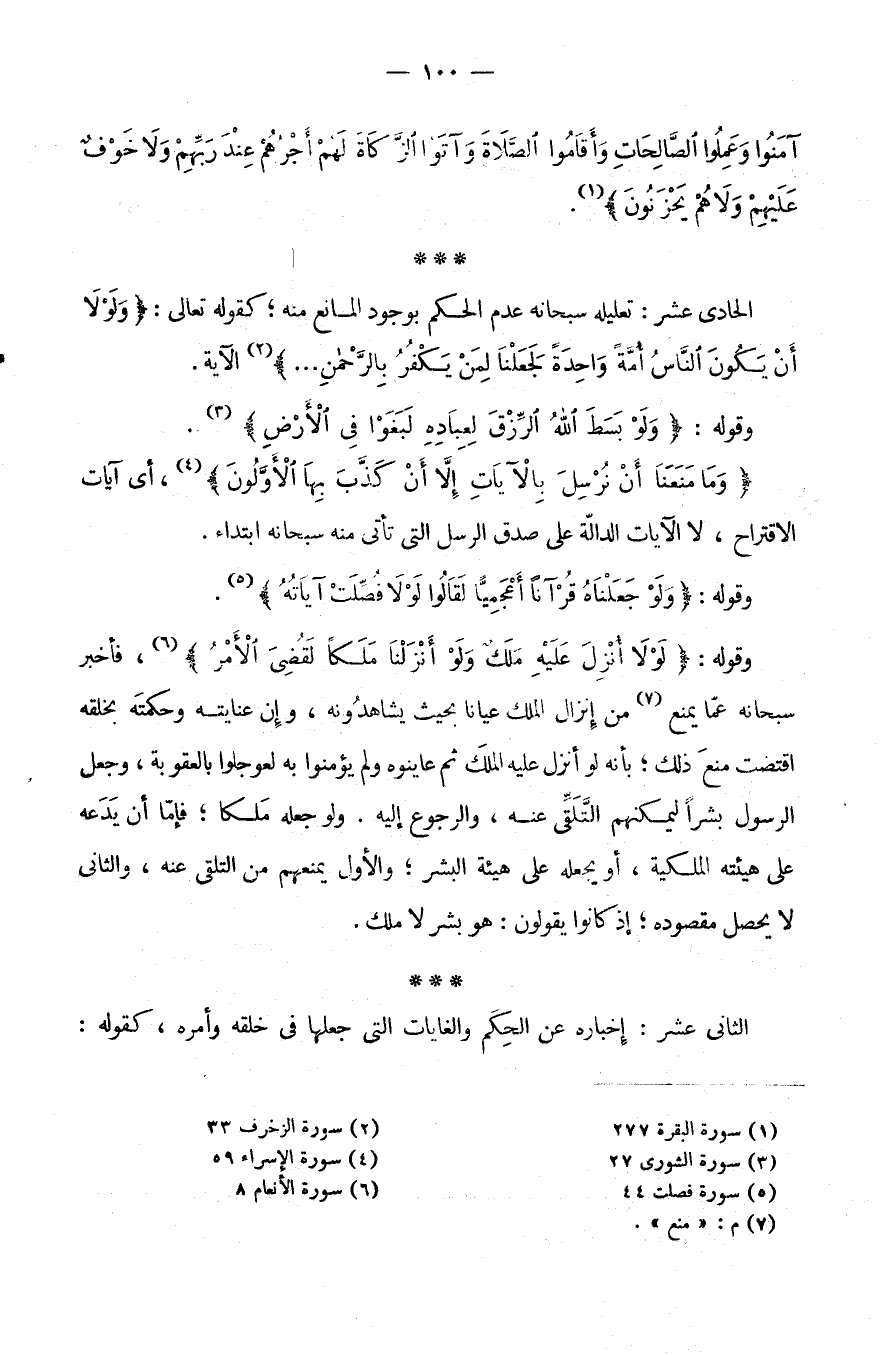 — ١٠٠ —
آمَنُوا وَعَمِلُوا ٱلصَّالِحَاتِ وَأَقَامُوا ٱلصَّلَاةَ وَآتَوُا ٱلزَّكَاةَ لَهُمْ أَجْرُهُمْ عِنْدَ رَبِّهِمْ وَلَا خَوْفٌ
عَلَيْهِمْ وَلَا هُمْ يَحْزَنُونَ ﴾(١).
***
الحادى عشر : تعليله سبحانه عدم الحكم بوجود المانع منه ؛ كقوله تعالى : ﴿ وَلَوْلَا
أَنْ يَكُونَ ٱلنَّاسُ أُمَّةً وَاحِدَةً لَجَعَلْنَا لِمَنْ يَكْفُرُ بِالرَّحْمٰنِ... ﴾(٢) الآية .
وقوله : ﴿ وَلَوْ بَسَطَ ٱللهُ ٱلرِّزْقَ لِعِبَادِهِ لَبَغَوْا فِى ٱلْأَرْضِ ﴾(٣) .
﴿ وَمَا مَنَعَنَا أَنْ نُرْسِلَ بِالْآيَاتِ إِلَّا أَنْ كَذَّبَ بِهَا ٱلْأَوَّلُونَ ﴾(٤) ، أى آيات
الاقتراح ، لا الآيات الدالّة على صدق الرسل التى تأتى منه سبحانه ابتداء .
وقوله : ﴿ وَلَوْ جَعَلْنَاهُ قُرْآنًا أَعْجَمِيًّا لَقَالُوا لَوْلَا فُصِّلَتْ آيَاتُهُ ﴾(٥) .
وقوله : ﴿ لَوْلَا أُنْزِلَ عَلَيْهِ مَلَكٌ وَلَوْ أَنْزَلْنَا مَلَكاً لَقُضِىَ ٱلْأَمْرُ ﴾(٦) ، فأخبر
سبحانه عمّا يمنع(٧) من إنزال الملك عيانا بحيث يشاهدُونه ، وإن عنايتـه وحكمتَه بخلقه
اقتضت منعَ ذلك ؛ بأنه لو أنزل عليه الملكَ ثم عاينوه ولم يؤمنوا به لعوجلوا بالعقوبة ، وجعل
الرسول بشراً ليمكنهم التَّلَقِّى عنـه ، والرجوع إليه . ولو جعله مَلَكا ؛ فإمّا أن يَدَعه
على هيئته الملكية ، أو يجعله على هيئة البشر ؛ والأول يمنعهم من التلقى عنه ، والثانى
لا يحصل مقصوده ؛ إذ كانوا يقولون : هو بشر لا ملك .
***
الثانى عشر : إخباره عن الحِكَم والغايات التى جعلها فى خلقه وأمره ، كقوله :
(١) سورة البقرة ٢٧٧ (٢) سورة الزخرف ٣٣
(٣) سورة الشورى ٢٧ (٤) سورة الإسراء ٥٩
(٥) سورة فصلت ٤٤ (٦) سورة الأنعام ٨
(٧) م : « منع » .